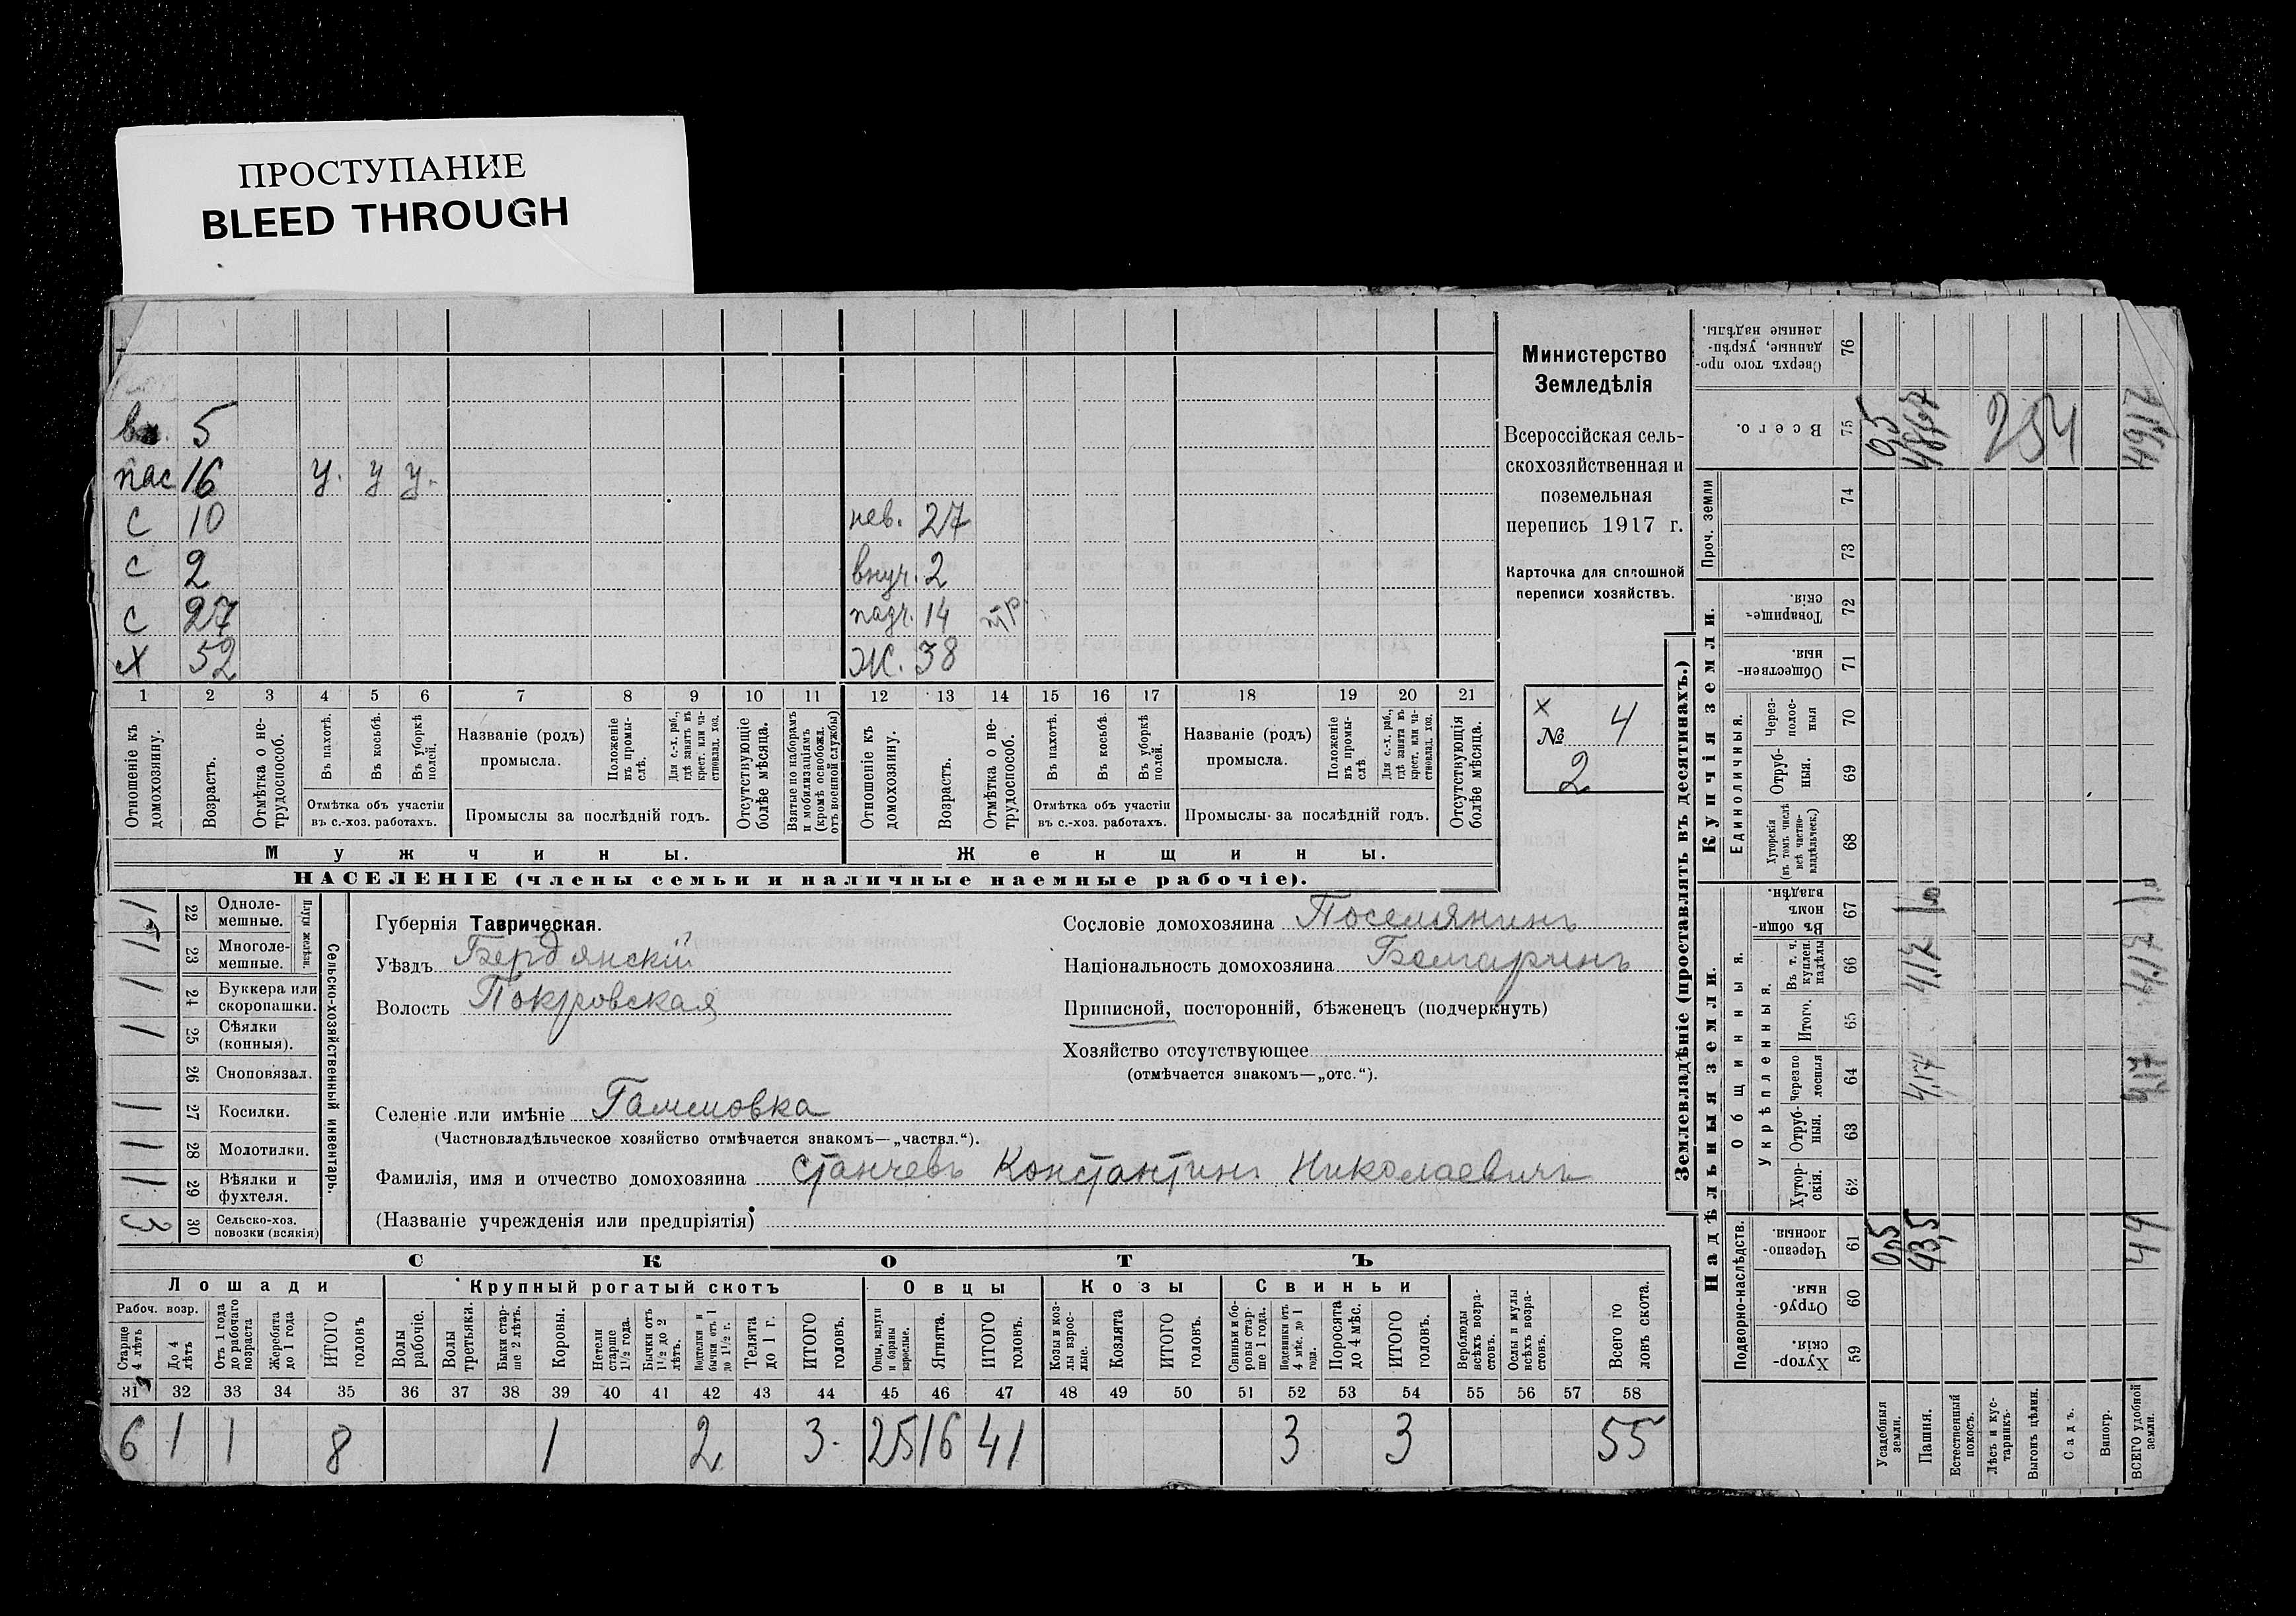 ПРОСТУПАНИЕ
BLEED THROUGH
вн. 5
пас 16 У. У У.
С 10 нев. 27
С 2 внуч. 2
С 27 падч. 14
Х 52 Ж. 38
1 2 3 4 5 6 7 8 9 10 11 12 13 14 15 16 17 18 19 20 21
Отношеніе къ домохозяину.
Возрастъ.
Отмѣтка о нетрудоспособ.
Въ пахотѣ.
Въ косьбѣ.
Въ уборкѣ полей.
Отмѣтка объ участіи
въ с.-хоз. работахъ.
Названіе (родъ)
промысла.
Положеніе въ промыслѣ.
Для с.-х. раб., гдѣ занятъ въ крест. или частновлад. хоз.
Промыслы за послѣдній годъ.
Отсутствующіе болѣе мѣсяца.
Взятые по наборамъ и мобилизаціямъ (кромѣ освобожд. отъ военной службы)
Отношеніе къ домохозяину.
Возрастъ.
Отмѣтка о нетрудоспособ.
Въ пахотѣ.
Въ косьбѣ.
Въ уборкѣ полей.
Отмѣтка объ участіи
въ с.-хоз. работахъ.
Названіе (родъ)
промысла.
Положеніе въ промыслѣ
Для с.-х. раб., гдѣ занята въ крест. или частновлад. хоз.
Промыслы за послѣдній годъ.
Отсутствующія болѣе мѣсяца.
Мужчины.
Женщины.
НАСЕЛЕНІЕ (члены семьи и наличные наемные рабочіе).
Министерство
Земледѣлія
Всероссійская сель-
скохозяйственная и
поземельная
перепись 1917 г.
Карточка для сплошной
переписи хозяйствъ.
х
№ 4
2
Плуги желѣзн.
22 Одноле-
мешные.
23 Многоле-
мешные.
24 Буккера или
скоропашки.
25 Сѣялки
(конныя).
26 Сноповязал.
27 Косилки.
28 Молотилки.
29 Вѣялки и
фухтеля.
30 Сельско-хоз.
повозки (всякія)
3
Сельско-хозяйственный инвентарь.
Губернія Таврическая.
Уѣздъ Бердянскій
Волость Покровская
Сословіе домохозяина Поселянинъ
Національность домохозяина Болгаринъ
Приписной, посторонній, бѣженецъ (подчеркнуть)
Хозяйство отсутствующее
(отмѣчается знакомъ—„отс.“).
Селеніе или имѣніе Гамовка
(Частновладѣльческое хозяйство отмѣчается знакомъ—„частвл.“).
Фамилія, имя и отчество домохозяина Станчевъ Константинъ Николаевичъ
(Названіе учрежденія или предпріятія)
СКОТЪ
Лошади Крупный рогатый скотъ Овцы Козы Свиньи
Рабоч. возр.
Старше 4 лѣтъ
До 4 лѣтъ
Отъ 1 года до рабочаго возраста
Жеребята до 1 года
ИТОГО головъ
Волы рабочіе.
Волы третьяки.
Быки старше 2 лѣтъ.
Коровы.
Нетели старше 1½ года.
Бычки отъ 1½ до 2 лѣтъ.
Подтелки и бычки отъ 1 до 1½ г.
Телята до 1 г.
ИТОГО головъ.
Овцы, валухи и бараны взрослые.
Ягнята.
ИТОГО головъ.
Козы и козлы взрослые.
Козлята
ИТОГО головъ.
Свиньи и боровы старше 1 года.
Подсвинки отъ 4 мѣс. до 1 года.
Поросята до 4 мѣс.
ИТОГО головъ.
Верблюды всѣхъ возрастовъ.
Ослы и мулы всѣхъ возрастовъ.
Всего головъ скота.
31 32 33 34 35 36 37 38 39 40 41 42 43 44 45 46 47 48 49 50 51 52 53 54 55 56 57 58
6 1 1 8 1 2 3. 25 16 41 3 3 55
Землевладѣніе (проставлять въ десятинахъ.)
Надѣльныя земли.
Купчія земли.
Проч. земли
Подворно-наслѣдств.
Общинныя.
Укрѣпленныя.
Единоличныя.
Хуторскія. 59
Отрубныя. 60
Черезполосныя. 61
Хуторскія. 62
Отрубныя. 63
Черезполосныя 64
Итого. 65
Въ т. ч. куплен. надѣлы 66
Въ общинномъ владѣн. 67
Хуторскія (въ томъ числѣ всѣ частновладѣльческ.) 68
Отрубныя. 69
Черезполосныя 70
Общественныя. 71
Товарищескія. 72
73
74
Всего. 75
Сверхъ того проданные, укрѣпленные надѣлы. 76
Усадебныя земли. 0,5 0,5
Пашня. 43,5 4,17 4,17
Естественный покосъ.
Лѣсъ и кустарникъ.
Выгонъ цѣлин.
Садъ.
Виногр.
ВСЕГО удобной земли. 44 4,17 4,17 49,17
254